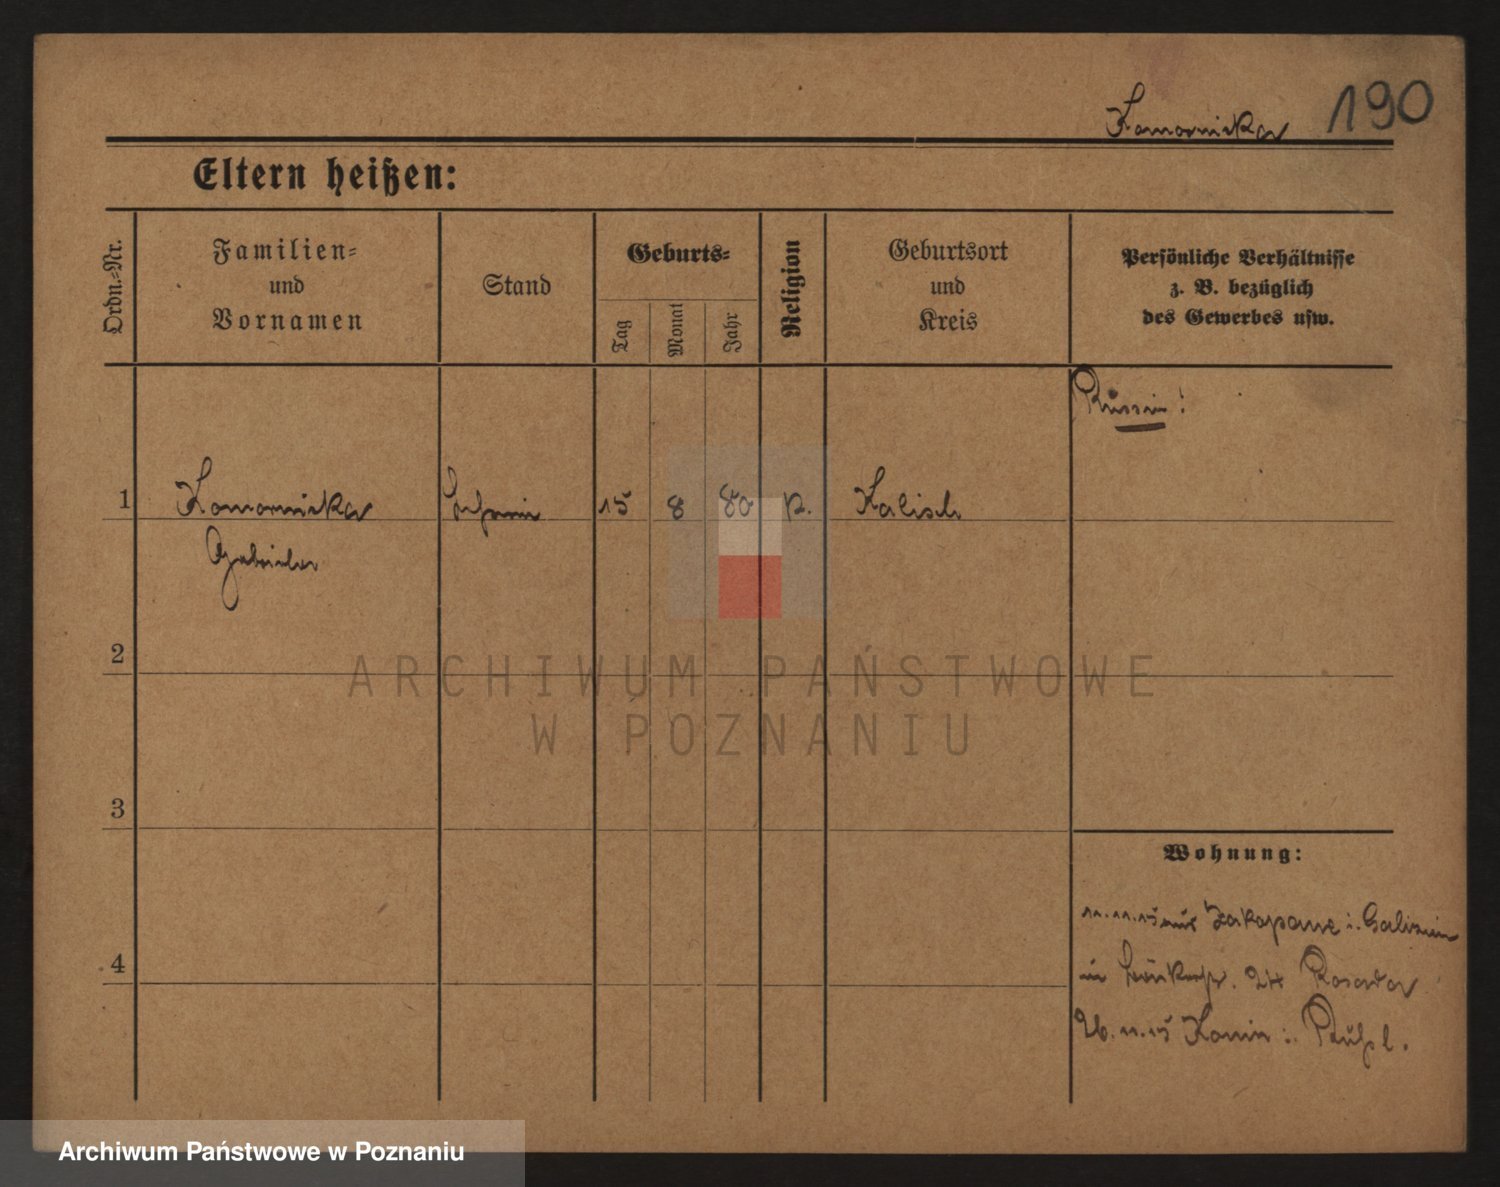 Komornicka 190
Eltern heißen:
Ordn.-Nr.
Familien-
und
Vornamen
Stand
Geburts-
Tag
Monat
Jahr
Religion
Geburtsort
und
Kreis
Persönliche Verhältnisse
z. B. bezüglich
des Gewerbes usw.
Russin!
1 Komornicka 15 8 80 k. Kalisch
Gabriela
2
3
4
Wohnung:
11.11.15 aus Zakopane i. Galizien
in 24
26.11.15 Konin i. Rußl.
ARCHIWUM PAŃSTWOWE
W POZNANIU
Archiwum Państwowe w Poznaniu